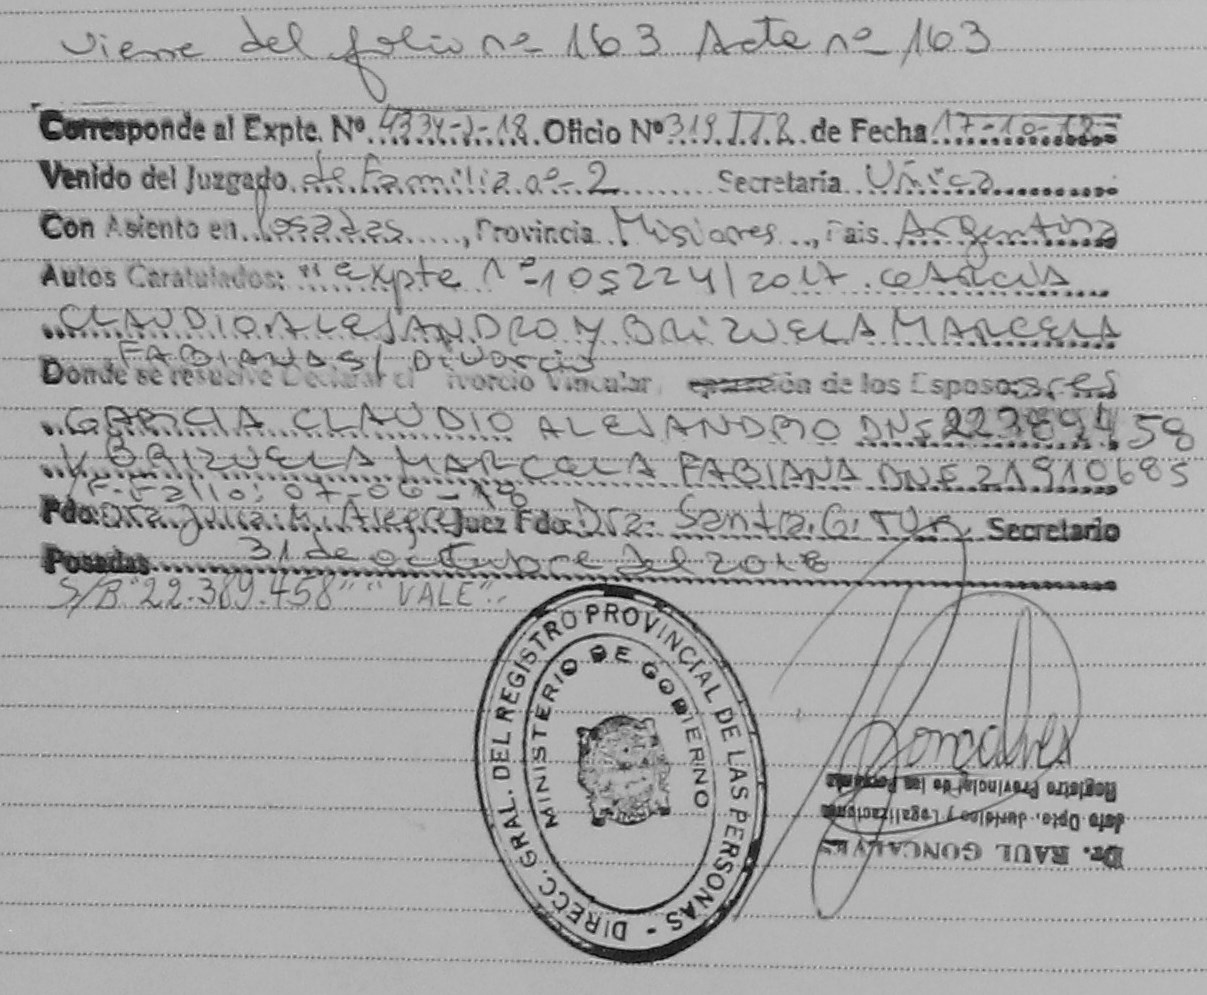 viene del folio nº 163 Acta nº 163
Corresponde al Expte. Nº 4334-J-18. Oficio Nº 319 I.I.8. de Fecha 17-10-18=
Venido del Juzgado de Familia nº-2 Secretaria Única
Con Asiento en Posadas, Provincia Misiones, Pais Argentina
Autos Caratulados: "expte Nº-105224/2017 GARCIA
CLAUDIO ALEJANDRO Y BRIZUELA MARCELA
FABIANA S/ Divorcio
Donde se resuelve Declarar el ivorcio Vincular, de los Esposos: sres
GARCIA CLAUDIO ALEJANDRO DNI 22389458
Y BRIZUELA MARCELA FABIANA DNI 21910685
F. Fallo: 07-06-18
Fdo: Dra. Julia M. Alegre Juez Fdo: Dra. Sandra G. Secretario
Posadas 31 de octubre del 2018
S/B "22.389.458" "VALE".
DIRECC. GRAL. DEL REGISTRO PROVINCIAL DE LAS PERSONAS -
MINISTERIO DE GOBIERNO
Gonçalves
Dr. RAUL GONCALVES
Jefe Dpto. Jurídico y Legalizaciones
Registro Provincial de las Personas